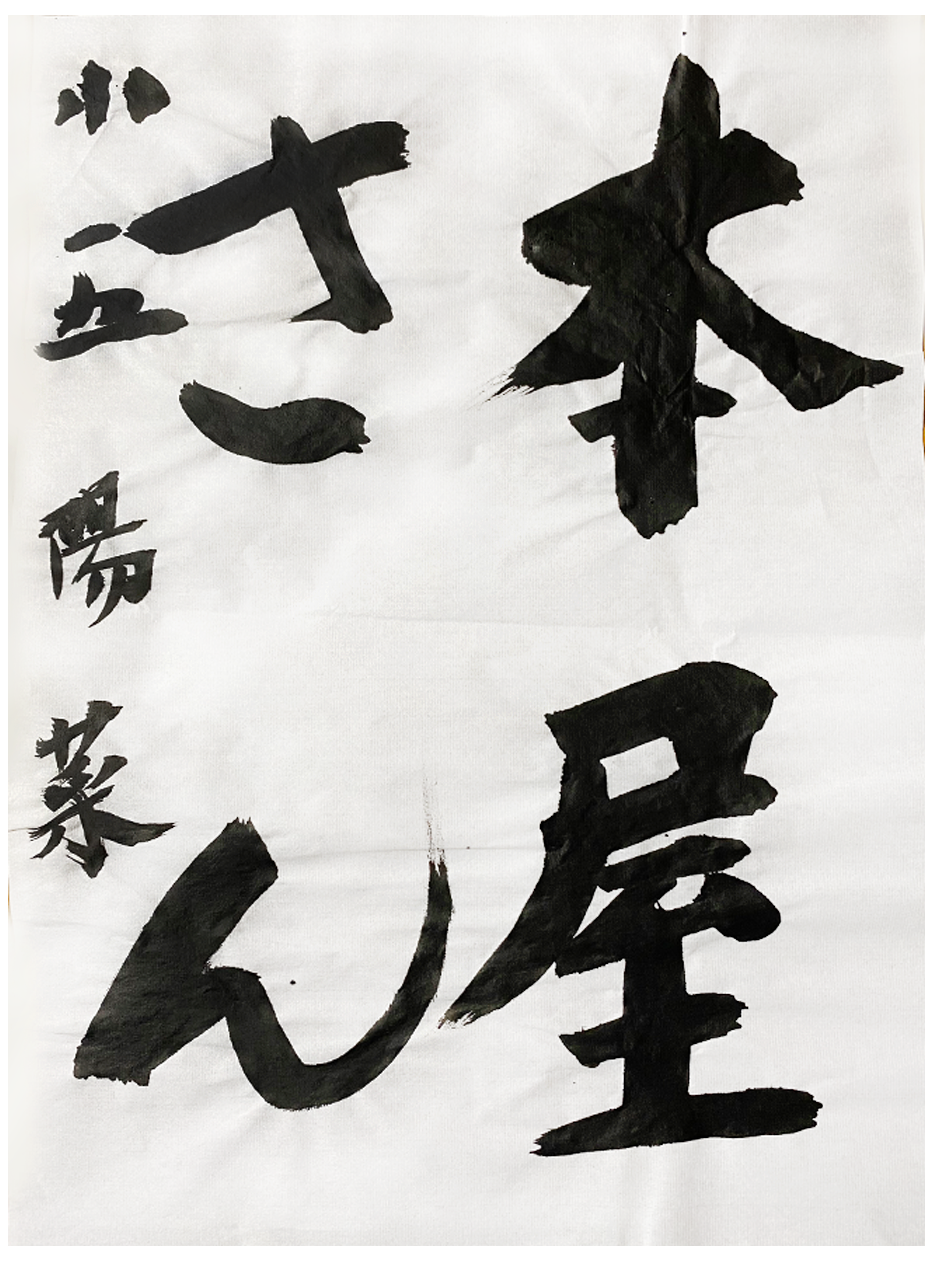 本屋
さん
小一五陽菜